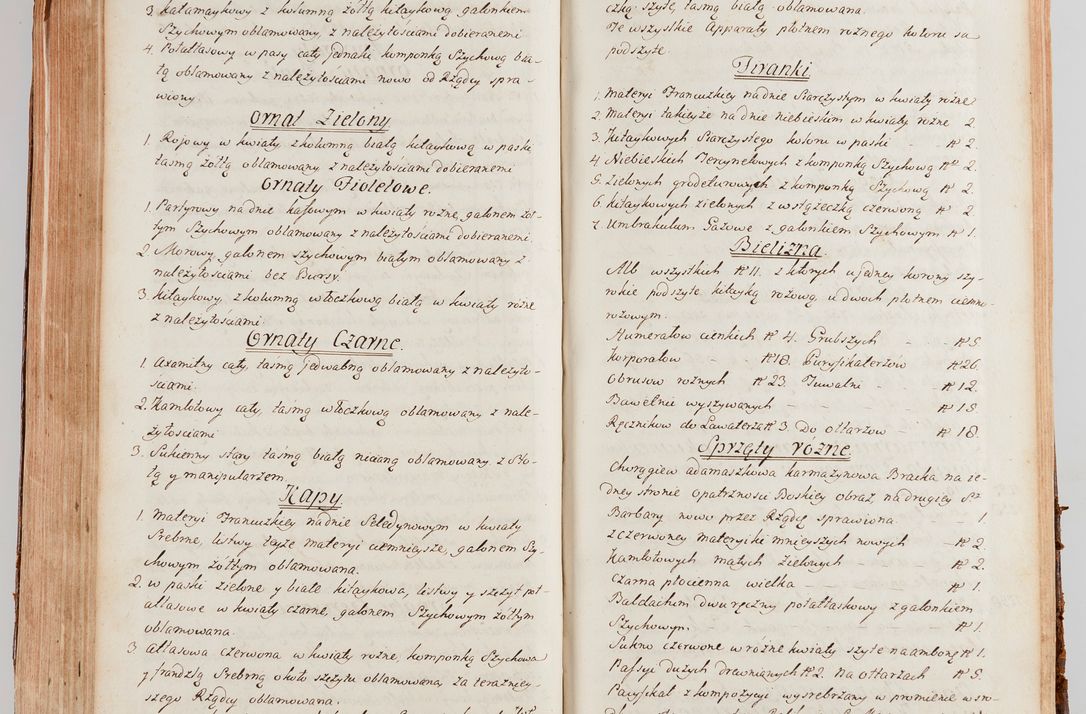 3. kałamaykowy z kolumną żółtą kitaykową galonkiem
Szychowym oblamowany, z należytościami dobieranemi
4. Półatłasowy w pasy cały jednako komponką Szychową bia-
łą oblamowany z należytościami nowo od Rządcy spra-
wiony
Ornat Zielony
1. Rojowy w kwiaty z kolumną białą kitaykową w paski
taśmą żółtą oblamowany z należytościami dobieranemi
Ornaty Fioletowe.
1. Partyrowy na dnie kafowym w kwiaty rożne, galonem żoł-
tym Szychowym oblamowany z należytościami dobieranemi.
2. Morowy galonem szychowym białym oblamowany z
należytościami bez Bursy.
3. kitaykowy, z kolumną włoczkową białą w kwiaty rożne
z należytościami
Ornaty Czarne.
1. Axamitny cały, taśmą jedwabną oblamowany z należyto-
sciami.
2. Kamlotowy cały, taśmą włoczkową oblamowany z nale-
żytościami
3. Sukienny stary taśmą białą nicianą oblamowany, z Sto-
łą y manipularzem
Kapy.
1. Materyi Francuzkiey na dnie Seledynowym w kwiaty
Srebrne, listwy teyże materyi ciemnieysze, galonem Szy-
chowym żółtym oblamowana.
2. w paski zielone y białe kitaykowa, listwy y szczyt poł-
atłasowe w kwiaty czarne, galonem Szychowym żółtym
oblamowana.
3. atłasowa czerwona w kwiaty rożne, komponką Szychową
y frandzlą Srebrną około szczytu oblamowana, za teraźniey-
szego Rządcy oblamowana.
czką szyte, taśmą białą oblamowana.
Te wszystkie Apparaty płotnem rożnego koloru są
podszyte.
Firanki
1. Materyi Francuzkiey na dnie Siarczystym w kwiaty rożne
2. Materyi takieyże na dnie niebieskim w kwiaty rożne 2.
3. kitaykowych Siarczystego koloru w paski - No 2.
4. Niebieskich Tercynelowych z komponką Szychową No 2.
5. Zielonych grodeturowych z komponką Szychową No 2.
6. kitaykowych zielonych z wstążeczką czerwoną No 2
7. Umbrakulum Gazowe z galonkiem Szychowym No 1.
Bielizna.
Alb wszystkich No 11. z ktorych u jedney korony szy-
rokie podszyte kitayką rożową, u dwoch płotnem ciemno
rożowym.
Humerałow cienkich No 4. Grubszych - No 5
Korporałow - No 18. Puryfikaterzow No 26.
Obrusow rożnych No 23. Tuwalni - No 12.
Bawełnie wyszywanych - No 15.
Ręcznikow do Lawaterza No 3. Do ołtarzow - No 18.
Sprzęty rożne
Chorągiew adamaszkowa karmazynowa Bracka na je-
dney stronie opatrzności Boskiey obraz, na drugiey St
Barbary nowo przez Rządcę sprawiona - 1.
z czerwoney materyiki mnieyszych nowych - No 2.
Kamlotowych małych Zielonych - No 2.
Czarna płocienna wielka - No 1.
Baldachim dwuręczny połatłaskowy z galonkiem
Szychowym. - No 1.
Sukno czerwone w rożne kwiaty szyte na ambonę No 1.
Passyi dużych drewnianych No 2. Na ołtarzach No 5.
Pacyfikał z kompozycyi wysrebrzany w promienie w sro-